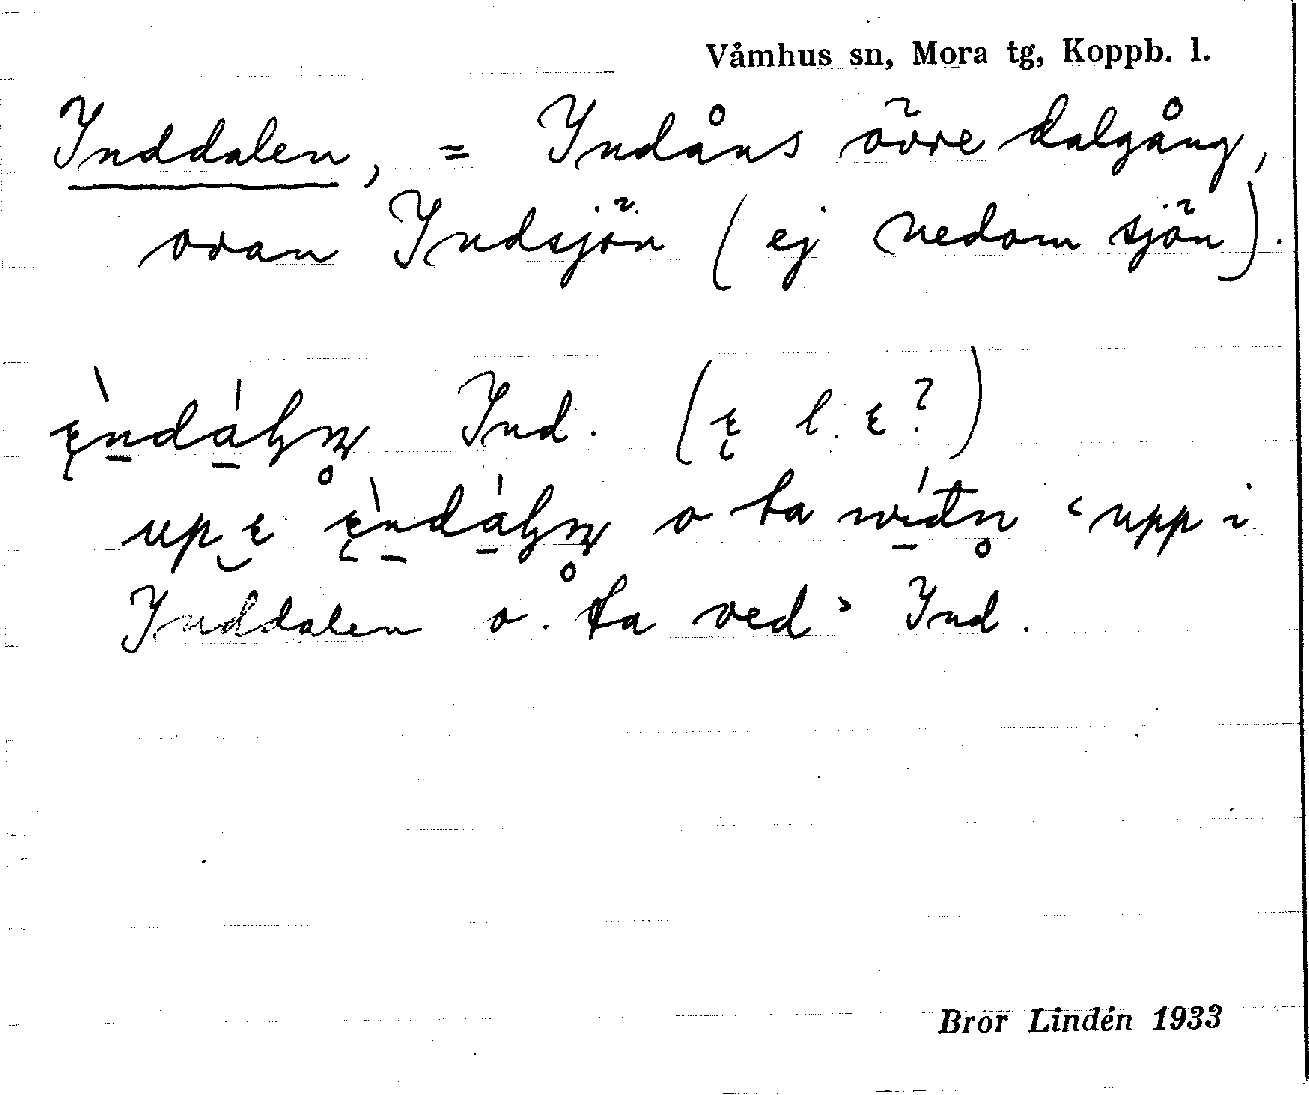 Våmhus sn, Mora tg, Koppb. l.
Inddalen, = Indåns övre dalgång,
ovan Indsjön (ej nedom sjön).
Ind. (ę l. ε?)
up o ta ‘upp i
Inddalen o. ta ved’ Ind.
Bror Lindén 1933